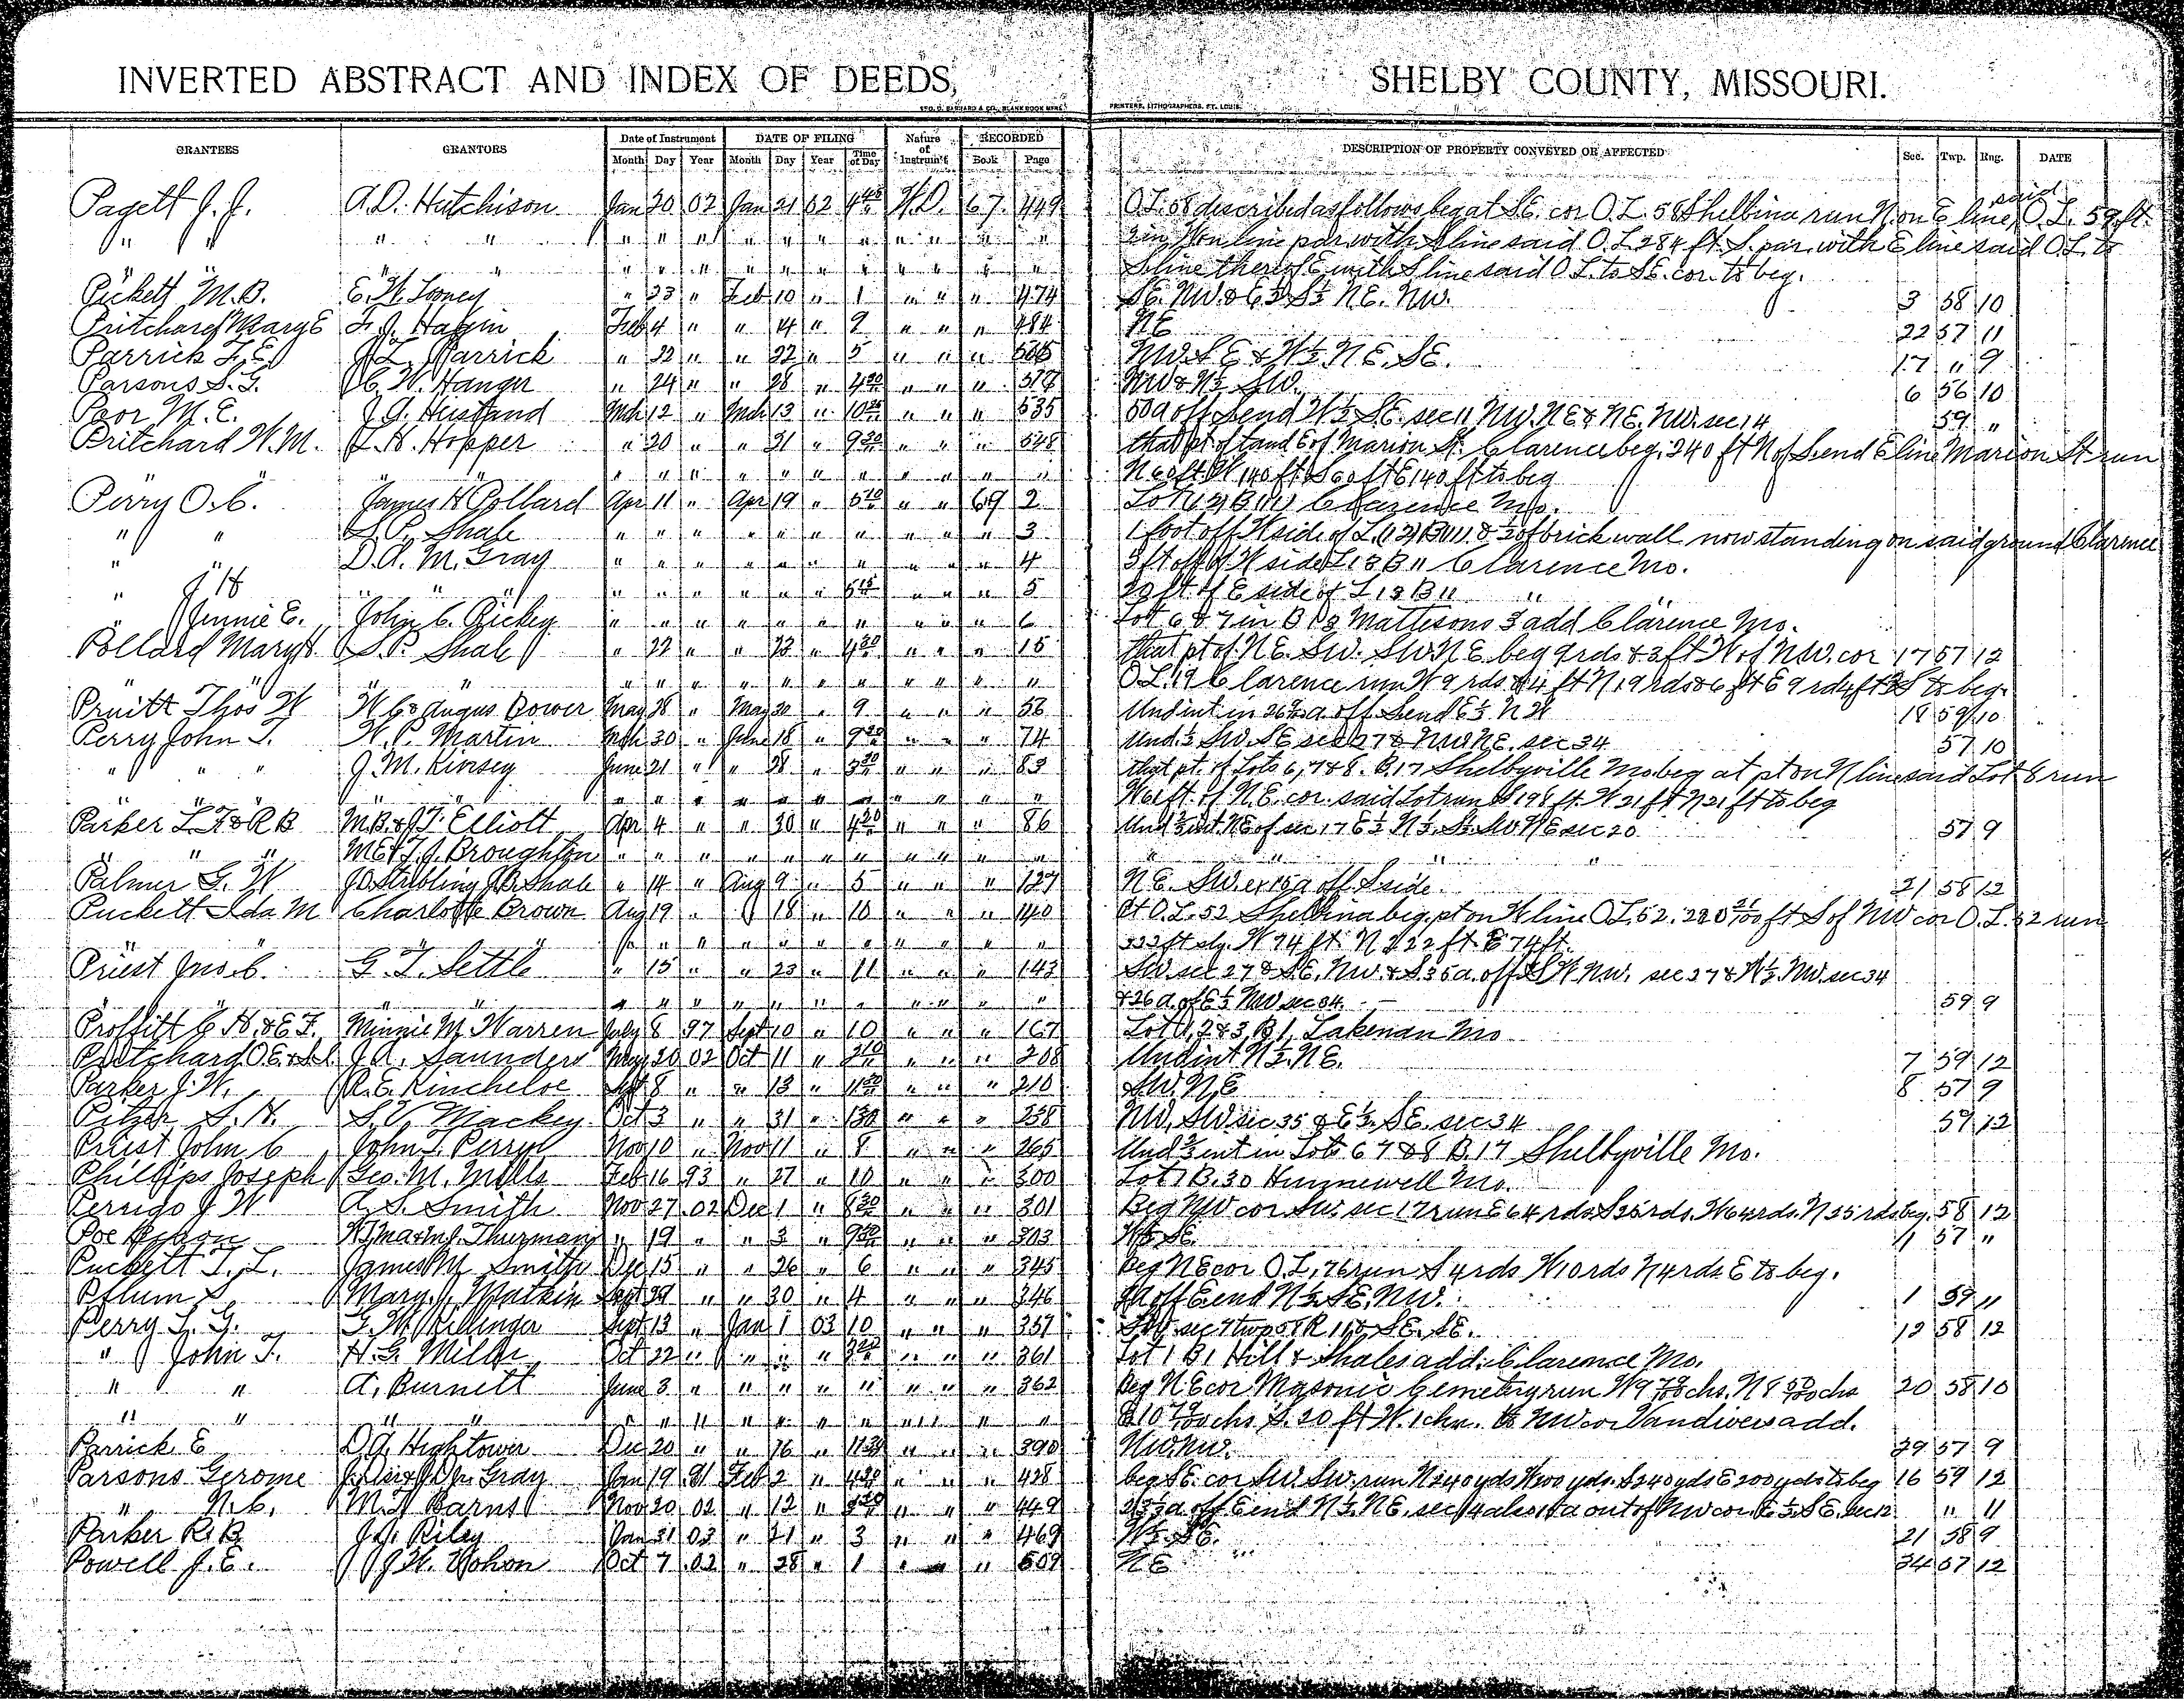 INVERTED ABSTRACT AND INDEX OF DEEDS, SHELBY COUNTY, MISSOURI.
GRANTEES GRANTORS Date of Instrument DATE OF FILING Nature of Instrum't RECORDED DESCRIPTION OF PROPERTY CONVEYED OR AFFECTED Sec. Twp. Rng. DATE
Month Day Year Month Day Year Time of Day Book Page
Pagett J. J. A. D. Hutchison Jan 20 02 Jan 21 02 4 45 W.D. 67 449 O.L. 58 described as follows beg at S.E. cor O.L. 58 Shelbina run N. on E line said O.L. 59 ft.
" " " " " " " " " " " " " " " 2 in W on line par. with S line said O.L. 284 ft. S. par. with E line said O.L. to
" " " " " " " " " " " " " " " S line thereof E with S line said O.L. to S.E. cor. to beg.
Pickett M. B. E. W. Looney " 23 " Feb 10 " 1 " " " 474 S.E. NW. & E ½ S ½ N.E. NW. 3 58 10
Pritchard Mary E F. J. Hagin Feb 4 " " 14 " 2 " " " 484 NE 22 57 11
Parrick F. E. J. L. Parrick " 22 " " 22 " 5 " " " NW. S E & W ½ N.E. SE. 17 " 9
Parsons S. F. C. W. Hanger " 24 " " 28 " 4 30 " " " NW & N ½ SW. 6 56 10
Poor M. E. J. A. Heistand Mch 12 " Mch 13 " 10 " " " 535 50 a off S end W ½ S.E. sec 11 NW. NE & N.E. NW. sec 14 59 "
Pritchard W. M. L. H. Hopper " 20 " " 21 " 9 30 " " " 548 that pt of land E of Marion St. Clarence beg. 240 ft N of S end E line Marion St run
" " " " " " " " " " " " " " N 60 ft W 140 ft S 60 ft E 140 ft to beg
Perry O. C. James H Pollard Apr 11 " Apr 19 " 5 10 " " 69 2 Lot (12) B (11) Clarence Mo.
" " S. P. Shale " " " " " " " " " " 3 1 foot off W side of L. (12) B (11) & ½ of brick wall now standing on said ground Clarence
" " D. A. M. Gray " " " " " " " " " " 4 3 ft off of W side L 13 B 11 Clarence Mo.
" J H " " " " " " " " " 5 15 " " " 5 20 ft of E side of L 13 B 11 " "
" Jennie E. John C. Rickey " " " " " " " " " " 6 Lot 6 & 7 in B 13 Mattisons 3 add Clarence Mo.
Pollard Mary S. P. Shale " 22 " " 23 " 4 30 " " " 15 that pt of N.E. SW. SW NE beg 9 rds & 3 ft W of NW. cor 17 57 12
" " " " " " " " " " " " " " " O.L. 19 Clarence run W 9 rds & 4 ft N 19 rds & 6 ft E 9 rds 4 ft S to beg.
Pruitt Thos W W C & Angus Bower May 28 " May 30 " 9 " " " 56 Und int in 26 a. off S end E ½ N W 18 59 10
Perry John T. W. P. Martin Mch 30 " June 18 " 9 30 " " " 74 Und. ½ SW. SE sec 27 & NW NE. sec 34 57 10
" " " J. M. Kinsey June 21 " " 28 " 3 30 " " " 83 that pt. of Lots 6, 7 & 8. B. 17 Shelbyville Mo beg at pt on N line said Lot 8 run
" " " " " " " " " " " " " " " W 61 ft. of N.E. cor. said Lot run S 198 ft. W 21 ft N 21 ft to beg
Parker L. F. & R B M. B. & J. F. Elliott Apr 4 " " 30 " 4 30 " " " 86 Und ½ int NE of sec 17 E ½ N ½. S ½. SW NE sec 20 57 9
" " " M E & F. J. Broughton " " " " " " " " " " " " " " "
Palmer G. W J. D. Stribling J. B. Shale " 14 " Aug 9 " 5 " " " 127 N E. SW. ex 15 a off S side 21 58 12
Puckett Ida M Charlotte Brown Aug 19 " " 18 " 10 " " " 140 Pt O.L. 52 Shelbina beg. pt on W line O.L. 52. 220 21/100 ft S of NW cor O.L. 52 run
" " " " " " " " " " " " " " ft sly. W 74 ft. N 222 ft. E 74 ft.
Priest Jno. C. G. T. Settle " 15 " " 23 " 11 " " " 143 SW. sec 27 & S.E. NW. & S 35 a. off S W NW. sec 27 & W ½. NW. sec 34
" " " " " " " " " " " " " " & 26 a. of E ½ NW sec 34. 59 9
Proffitt C. H. & E. F. Minnie M. Warren July 8 97 Sept 10 " 10 " " " 167 Lot 1, 2 & 3, B 1, Lakenan Mo
Pritchard O E J. A. Saunders May 20 02 Oct 11 " 2 10 " " " 208 Und int N ½. NE. 7 59 12
Parker J. W. R. E. Kincheloe Sept 8 " " 13 " 11 30 " " " 210 SW. NE 8 57 9
Pilzer S. H. S. V. Mackey Oct 3 " " 31 " 1 30 " " " 258 NW. SW sec 35 & E ½. SE. sec 34 57 12
Priest John C John T. Perry Nov 10 " Nov 11 " 8 " " " 265 Und ½ int in Lots 6 7 & 8 B. 17 Shelbyville Mo.
Phillips Joseph Geo. M. Mills Feb 16 93 " 27 " 10 " " " 300 Lot 7 B. 30 Hunnewell Mo.
Persigo J W A. S. Smith Nov 27 02 Dec 1 " 8 30 " " " 301 Beg NW cor SW. sec 17 run E 64 rds S 25 rds. W 64 rds. N 25 rds beg. 58 12
Poe W. J. Mary J. Thurman " 19 " " 3 " 9 30 " " " 303 W ½ SE. 11 57 "
Puckett T. L. James M Smith Dec 15 " " 26 " 6 " " " 345 beg NE cor O.L. 76 run S 4 rds W 10 rds N 4 rds E to beg.
Pflum S Mary J. Watkin Sept 29 " " 30 " 4 " " " 346 off E end N ½. SE. NW. 1 59 11
Perry T. G. G. W. Killinger Sept 13 " Jan 1 03 10 " " " 357 sec 7 twp 57 R 11 & SE. SE. 12 58 12
" John T. H. G. Miller Oct 22 " " " " 3 " " " 361 Lot 1 B 1 Hill & Shales add. Clarence Mo.
" " A. Burnett June 3 " " " " " " " " 362 beg N.E cor Masonic Cemetery run W 9 chs. N 8 50/100 chs 20 58 10
" " " " " " " " " " " " " " " E 10 chs S. 20 ft W. 1 chn. to NW cor Vandivers add.
Parrick E D. A. Hightower Dec 20 " " 16 " 11 30 " " " 390 NW. NW. 29 57 9
Parsons Gerome Gray Jan 19 91 Feb 2 " 4 30 " " " 428 beg S.E. cor SW. SW. run N 240 yds W 200 yds. S 240 yds E 200 yds to beg 16 59 12
" N. C. M. F. Barns Nov 20 02 " 12 " " " " 449 23 ½ a. off E end N ½. NE. sec 14 also 1 a out of NW cor E ½ SE. sec 12 " 11
Parker R. B. J. J. Riley Jan 31 03 " 21 " 3 " " " 469 W ½. SE. 21 58 9
Powell J. E. J. W. Yohon Oct 7 02 " 28 " 1 " " " 509 NE 34 57 12